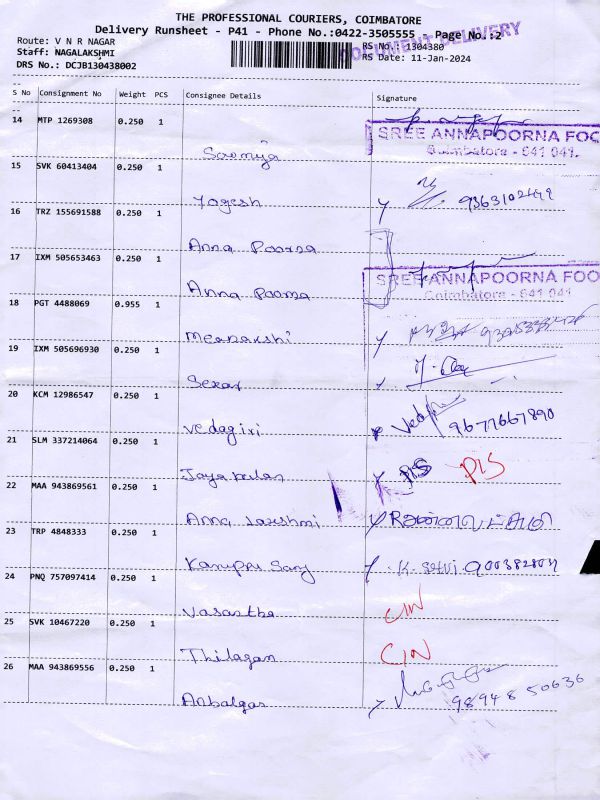 THE PROFESSIONAL COURIERS, COIMBATORE
Delivery Runsheet - P41 - Phone No.:0422-3505555 Page No.:2
DOCUMENT DELIVERY
Route: V N R NAGAR
Staff: NAGALAKSHMI
DRS No.: DCJB130438002
RS No.: 1304380
RS Date: 11-Jan-2024
S No Consignment No Weight PCS Consignee Details Signature
14 MTP 1269308 0.250 1
SREE ANNAPOORNA FOO
Coimbatore - 641 041.
Sowmiya
15 SVK 60413404 0.250 1
Yogesh
16 TRZ 155691588 0.250 1
Anna Poorna
17 IXM 505653463 0.250 1
SREE ANNAPOORNA FOO
Coimbatore - 641 041
Anna Poorna
18 PGT 4488069 0.955 1
Meenakshi
19 IXM 505696930 0.250 1
Sekar
20 KCM 12986547 0.250 1
Vedagiri 9677667890
21 SLM 337214064 0.250 1
PIS PIS
22 MAA 943869561 0.250 1
Anna Lakshmi
23 TRP 4848333 0.250 1
24 PNQ 757097414 0.250 1
Vasantha CIN
25 SVK 10467220 0.250 1
Thilagan CIN
26 MAA 943869556 0.250 1
Anbalgan 98948 50636